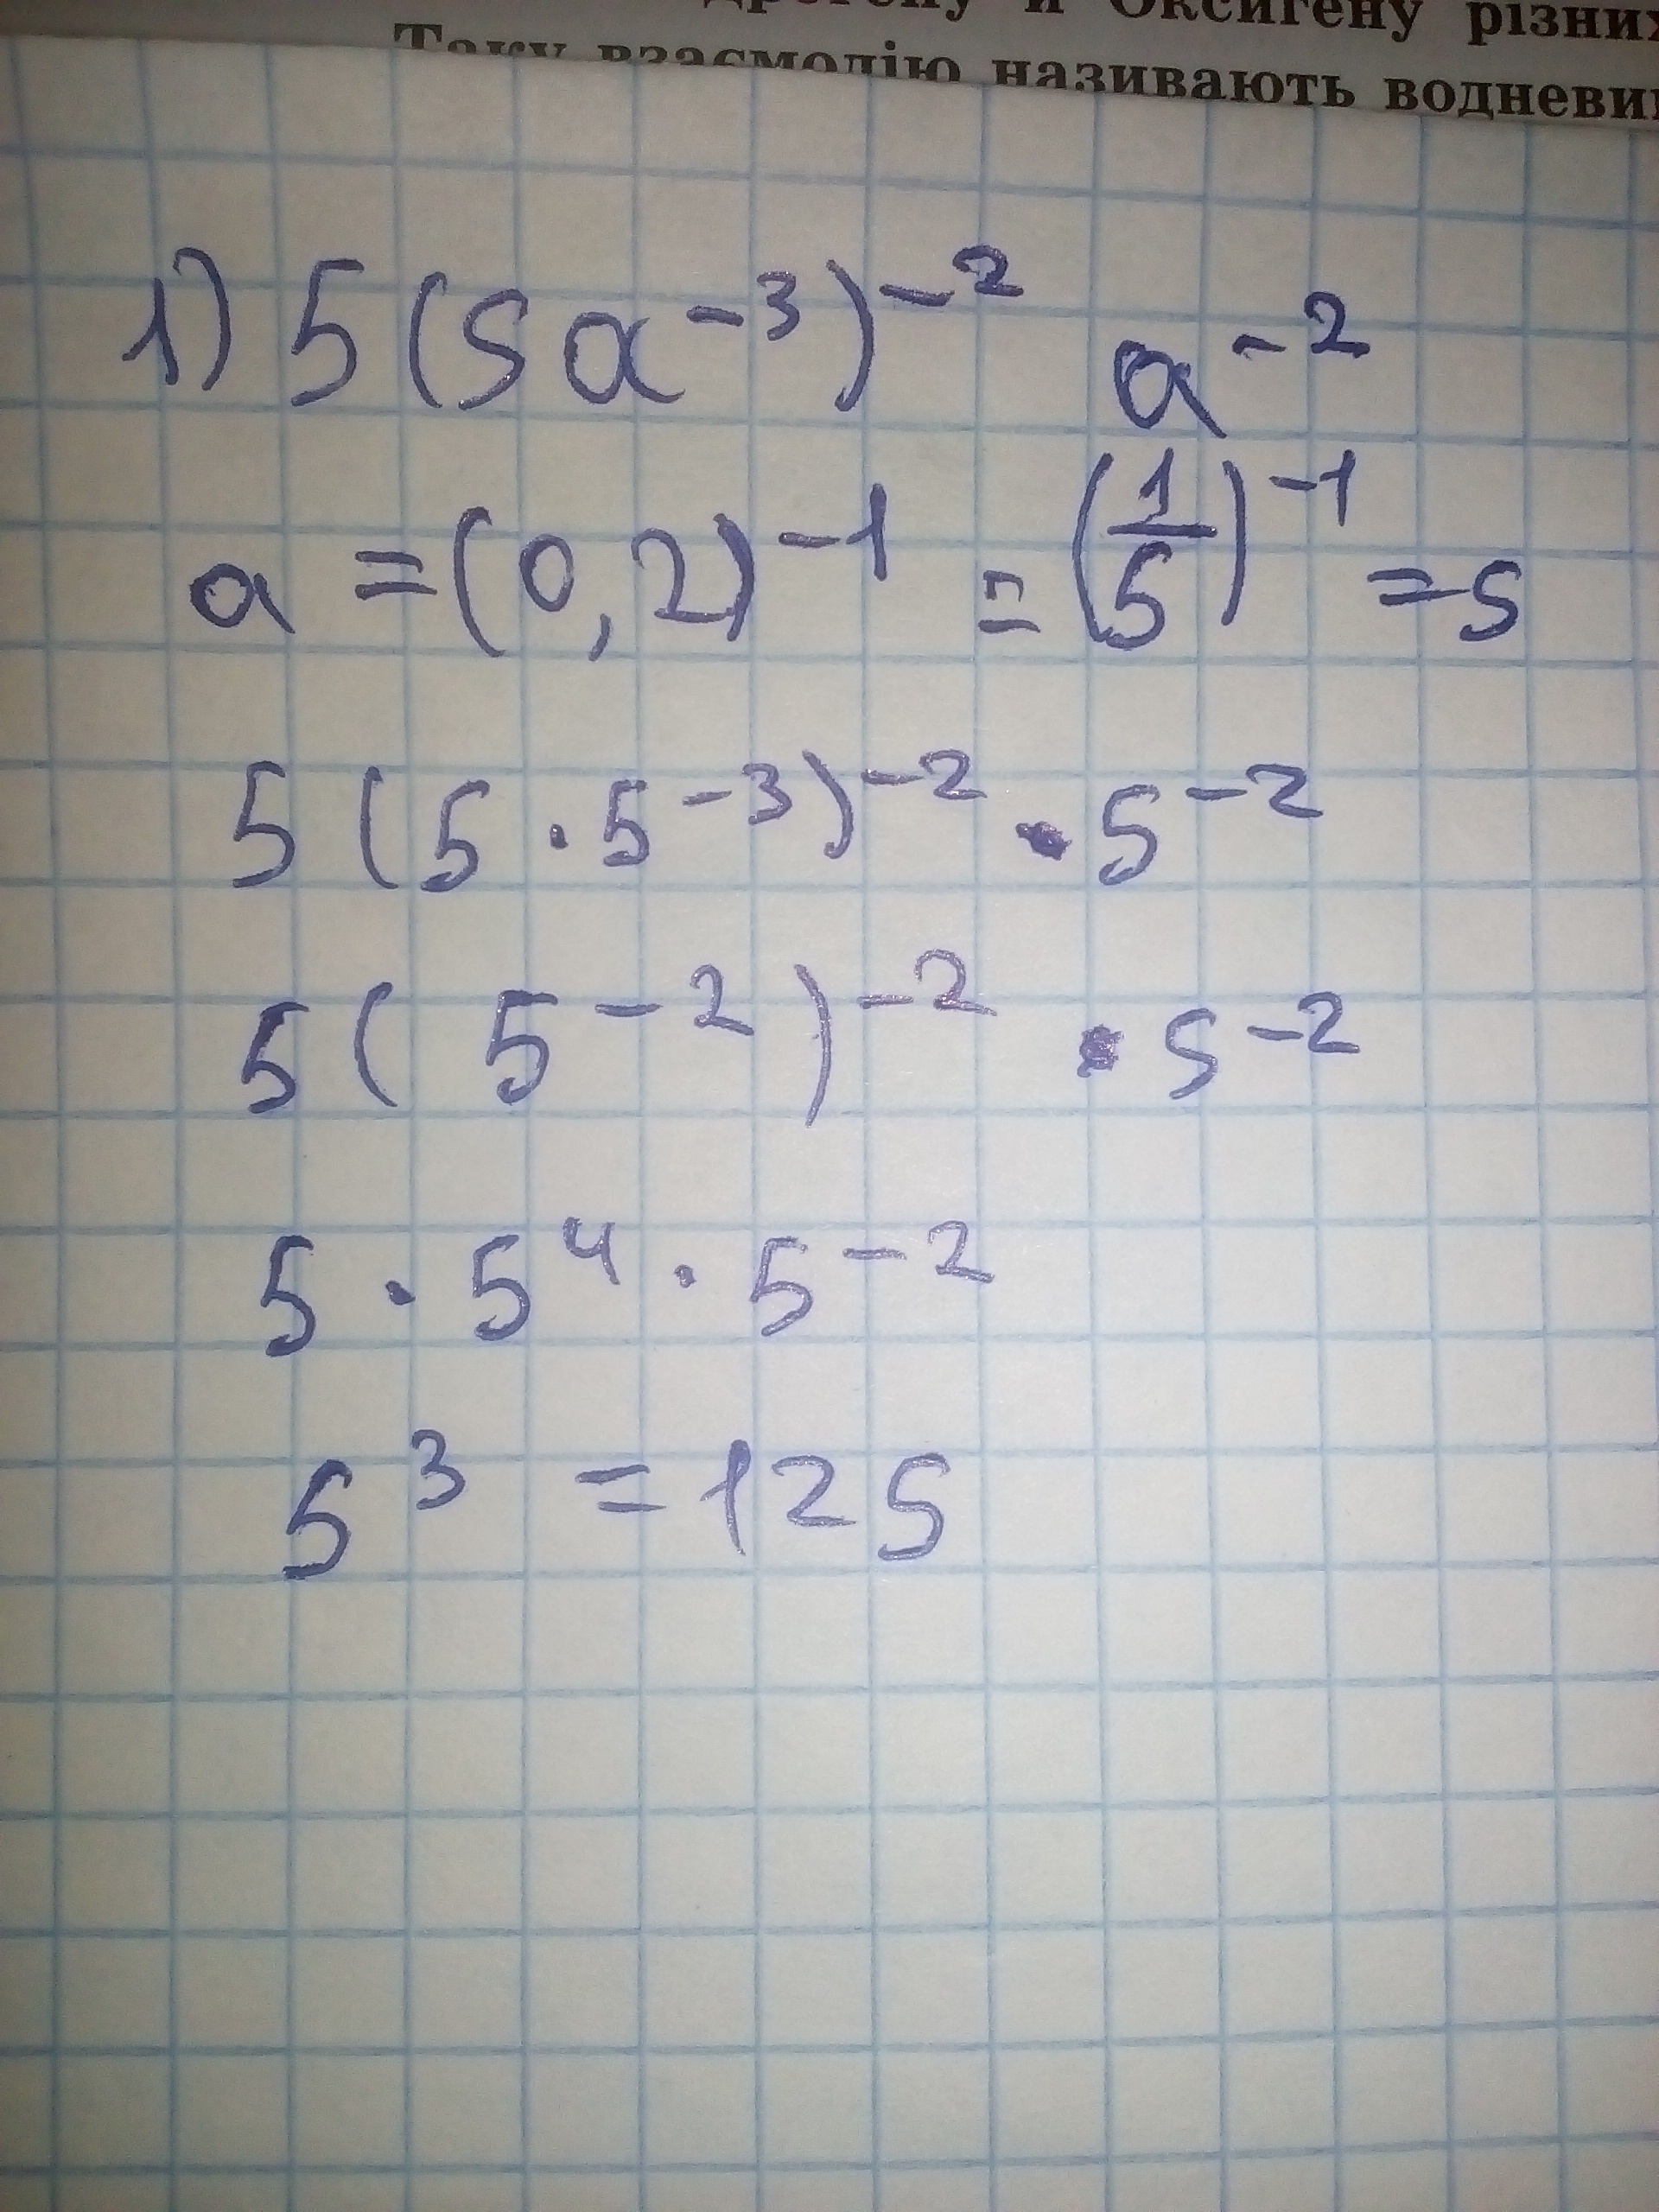 Оксигену різних
Таку взаємодію називають водневи
1) 5(5a⁻³)⁻² a⁻²
a = (0,2)⁻¹ = (1/5)⁻¹ = 5
5(5 · 5⁻³)⁻² · 5⁻²
5(5⁻²)⁻² · 5⁻²
5 · 5⁴ · 5⁻²
5³ = 125